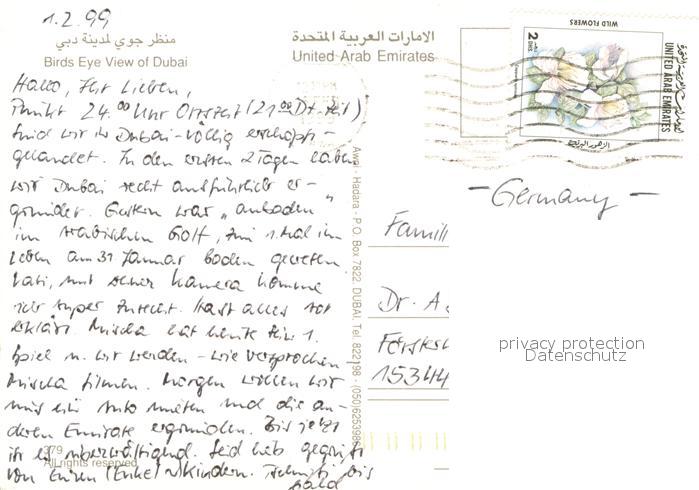 1.2.99
منظر جوي لمدينة دبي
Birds Eye View of Dubai
الامارات العربية المتحدة
United Arab Emirates
WILD FLOWERS
2
UNITED ARAB EMIRATES
الزهور البرية
Hallo, Ihr Lieben,
Punkt 24.00 Uhr Ortszeit (21.00 Dt. Zeit)
sind wir in Dubai - völlig erschöpft -
gelandet. In den ersten 2 Tagen haben
wir Dubai recht ausführlich er-
gründet. Gestern war "anbaden"
im Arabischen Golf, zum 1. Mal im
Leben am 31 Januar baden gewesen.
Vati, mit deiner Kamera komme
ich super zurecht. Hast alles gut
erklärt. Mischa hat heute sein 1.
Spiel u. wir werden - wie versprochen
Mischa filmen. Morgen wollen wir
uns ein Auto mieten und die an-
deren Emirate ergründen. Bis jetzt
ist es überwältigend. Seid lieb gegrüßt
von Euren (Enkel) Kindern. Tschüß, bis
bald
379
All rights reserved
Awal - Hadara - P.O. Box 7822, DUBAI, Tel. 822198 - (050)6253984
- Germany -
Famili
Dr. A
Försterl
15344
privacy protection
Datenschutz